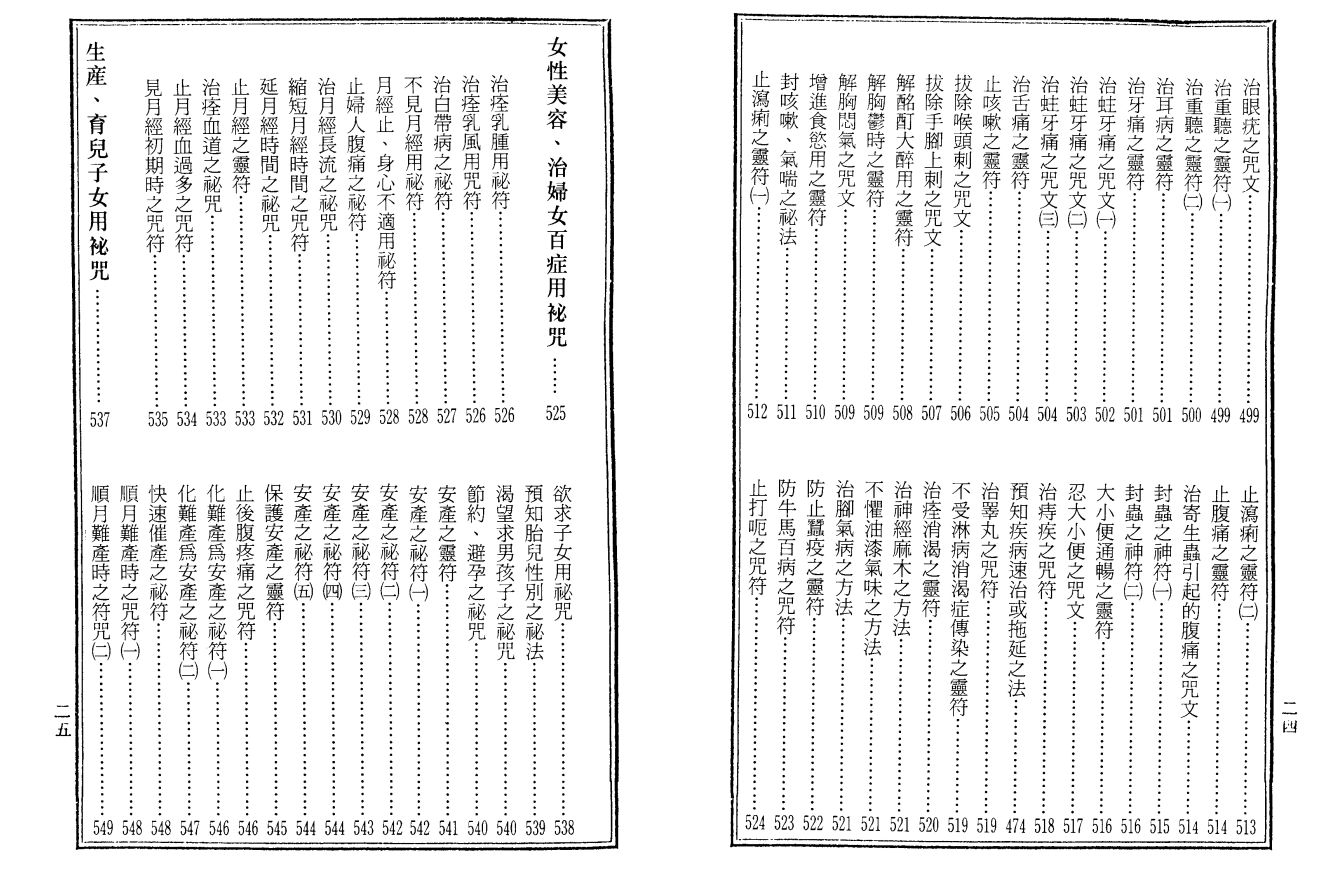 治眼疣之咒文……499
治重聽之靈符㈠……499
治重聽之靈符㈡……500
治耳病之靈符……501
治牙痛之靈符……501
治蛀牙痛之咒文㈠……502
治蛀牙痛之咒文㈡……503
治蛀牙痛之咒文㈢……504
治舌痛之靈符……504
止咳嗽之靈符……505
拔除喉頭刺之咒文……506
拔除手腳上刺之咒文……507
解酩酊大醉用之靈符……508
解胸鬱時之靈符……509
解胸悶氣之咒文……509
增進食慾用之靈符……510
封咳嗽、氣喘之祕法……511
止瀉痢之靈符㈠……512
止瀉痢之靈符㈡……513
止腹痛之靈符……514
治寄生蟲引起的腹痛之咒文……514
封蟲之神符㈠……515
封蟲之神符㈡……516
大小便通暢之靈符……516
忍大小便之咒文……517
治痔疾之咒符……518
預知疾病速治或拖延之法……474
治睪丸之咒符……519
不受淋病消渴症傳染之靈符……519
治痊消渴之靈符……520
治神經麻木之方法……521
不懼油漆氣味之方法……521
治腳氣病之方法……521
防止蠶疫之靈符……522
防牛馬百病之咒符……523
止打呃之咒符……524
二四
女性美容、治婦女百症用祕咒……525
治痊乳腫用祕符……526
治痊乳風用咒符……526
治白帶病之祕符……527
不見月經用祕符……528
月經止、身心不適用祕符……528
止婦人腹痛之祕符……529
治月經長流之祕咒……530
縮短月經時間之咒符……531
延月經時間之祕咒……532
止月經之靈符……533
治痊血道之祕咒……533
止月經血過多之咒符……534
見月經初期時之咒符……535
生産、育兒子女用祕咒……537
欲求子女用祕咒……538
預知胎兒性別之祕法……539
渴望求男孩子之祕咒……540
節約、避孕之祕咒……540
安產之靈符……541
安產之祕符㈠……542
安產之祕符㈡……542
安產之祕符㈢……543
安產之祕符㈣……544
安產之祕符㈤……544
保護安產之靈符……545
止後腹疼痛之咒符……546
化難產爲安產之祕符㈠……546
化難產爲安產之祕符㈡……547
快速催產之祕符……548
順月難產時之咒符㈠……548
順月難產時之符咒㈡……549
二五